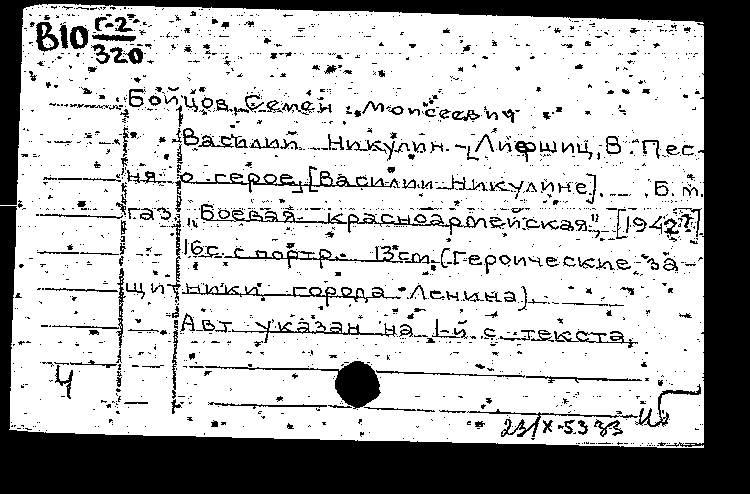 В10 Г-2
320
Бойцов, Семен Моисеевич
Василий Никулин. - Лифшиц, В. Пес-
ня о герое, [Василии Никулине]. Б.м.
газ. "Боевая красноармейская", [1942?]
16с. с портр. 13cm. (Героические за-
щитники города Ленина).
Авт. указан на 1-й с. текста.
4
23/X-53